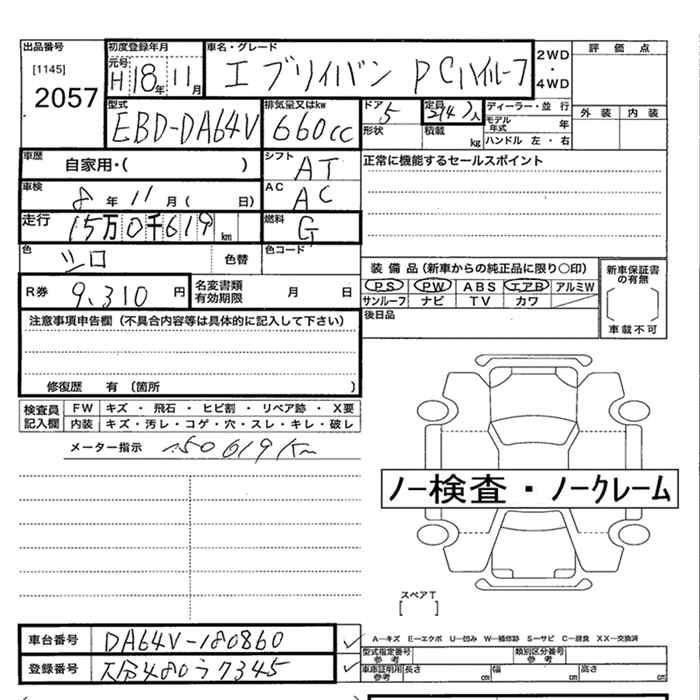 出品番号
[1145]
2057
初度登録年月
元号
H 18年 11月
車名・グレード
エブリィバン PCハイルーフ
2WD
・
4WD
評 価 点
外 装 内 装
型式
EBD-DA64V
排気量又はkw
660cc
ドア
5
形状
定員
2(4)人
積載
kg
ディーラー・並 行
モデル年式 年
ハンドル 左・右
車歴
自家用・( )
シフト
AT
正常に機能するセールスポイント
車検
8年 11月( 日)
AC
AC
走行
15万0千619km
燃料
G
色
シロ
色替
色コード
装 備 品(新車からの純正品に限り○印)
PS PW ABS エアB アルミW
サンルーフ ナビ TV カワ
新車保証書の有無
車載不可
R券 9,310 円
名変書類有効期限 月 日
後日品
注意事項申告欄(不具合内容等は具体的に記入して下さい)
修復歴 有(箇所 )
検査員記入欄
FW キズ ・ 飛石 ・ ヒビ割 ・ リペア跡 ・ X要
内装 キズ・汚レ・コゲ・穴・スレ・キレ・破レ
メーター指示 150619km
ノー検査・ノークレーム
スペアT
[ ]
車台番号 DA64V-180860
登録番号 480 7345
A―キズ E―エクボ U―凹み W―補修跡 S―サビ C―腐食 XX―交換済
型式指定番号
参考
類別区分番号
参考
車庫証明用
参考
長さ cm 幅 cm 高さ cm